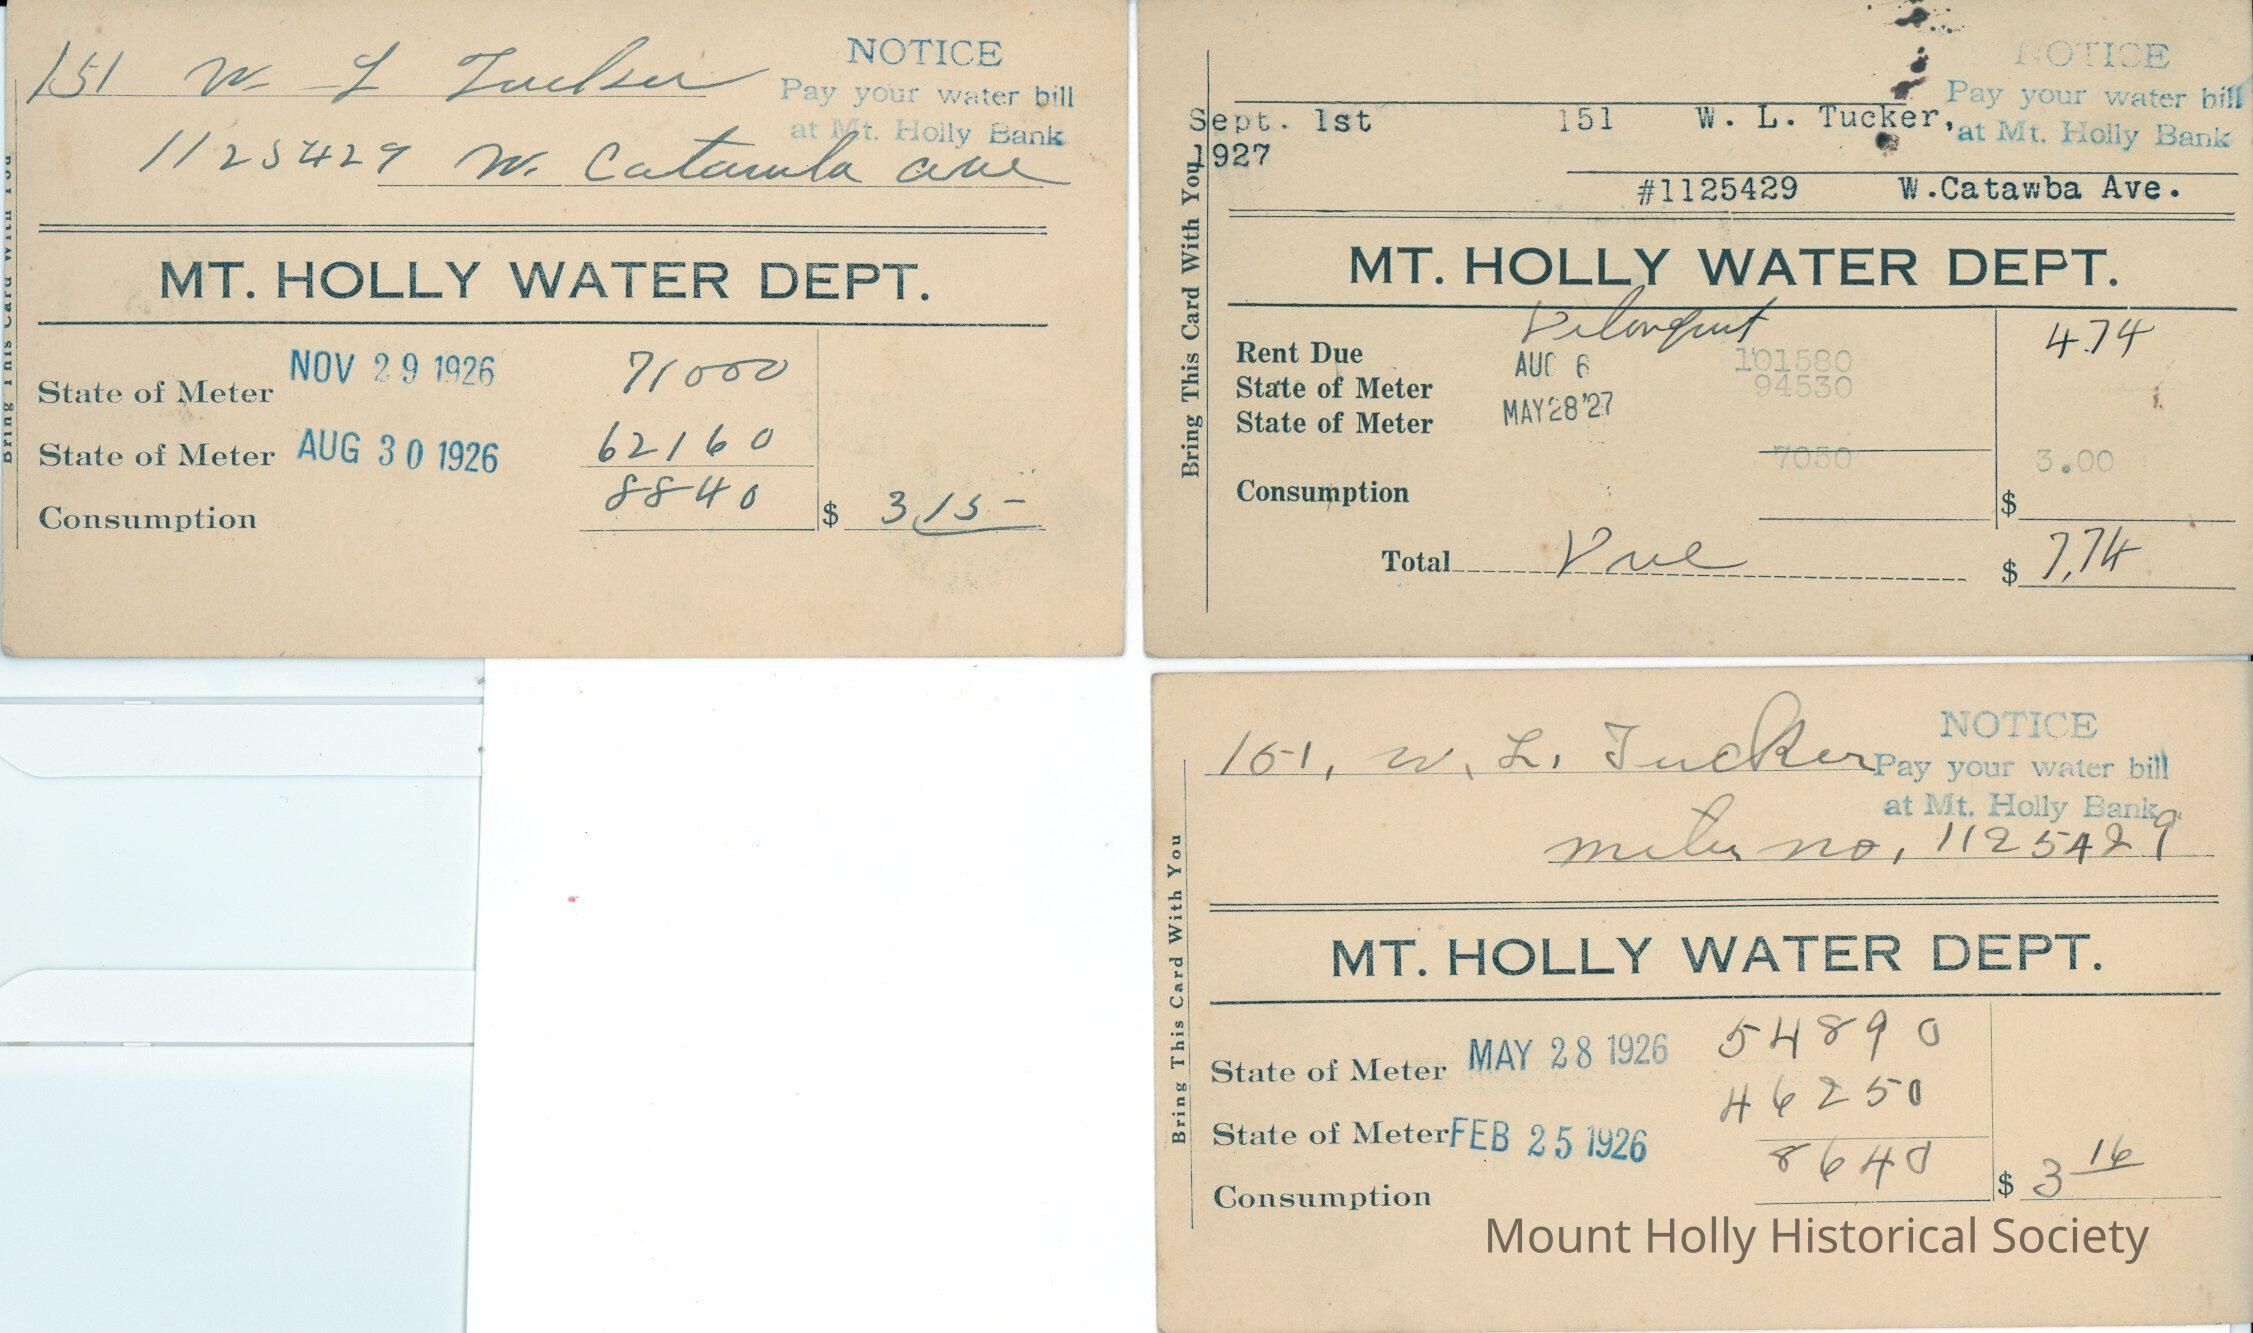 151 W L Tucker
NOTICE
Pay your water bill
at Mt. Holly Bank
1125429 W. Catawba ave
Bring This Card With You
MT. HOLLY WATER DEPT.
State of Meter NOV 29 1926 71000
State of Meter AUG 30 1926 62160
Consumption 8840 $ 3.15-
NOTICE
Pay your water bill
at Mt. Holly Bank
Sept. 1st 151 W. L. Tucker,
1927
#1125429 W.Catawba Ave.
Bring This Card With You
MT. HOLLY WATER DEPT.
Delonqut
Rent Due 4.74
State of Meter AUG 6 101580
State of Meter MAY 28 '27 94530
7050 3.00
Consumption $
Total Due $ 7.74
151, W. L. Tucker
NOTICE
Pay your water bill
at Mt. Holly Bank
meter no, 1125429
Bring This Card With You
MT. HOLLY WATER DEPT.
State of Meter MAY 28 1926 54890
State of Meter FEB 25 1926 46250
Consumption 8640 $ 3 16
Mount Holly Historical Society